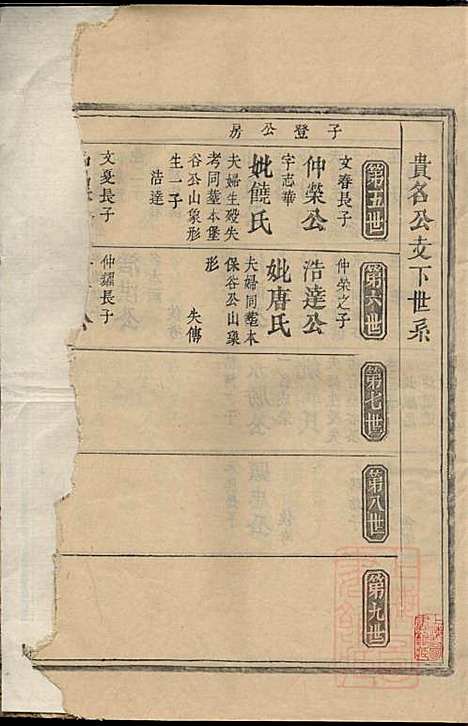 子登公房
貴名公支下世系
第五世
文春長子
仲榮公
字志華
妣饒氏
夫婦生殁失
考同塟本堡
谷公山象形
生一子
浩達
文夏長子
第六世
仲榮之子
浩達公
妣唐氏
夫婦同塟本
保谷公山象
形
失傳
仲耀長子
第七世
第八世
第九世